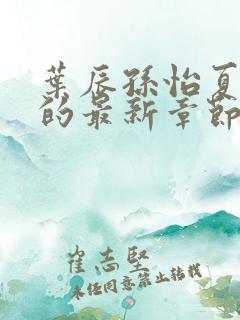 葉辰孫怡夏
的最新章節
崔志堅
未經同意禁止转载